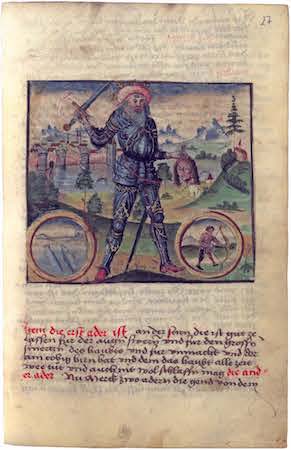 27
Item die erst ader ist an der stirn die ist gut ze
lassen fur der augen swern vnd fur den grossen
smertzen des haubtes vnd fur vnmacht vnd der
am tobig hirn hat vnd dem das haubt alle zeit
wee tut vnd auch nit wol schlaffen mag die and
er ader Nu merck zwo adern die gend von dem